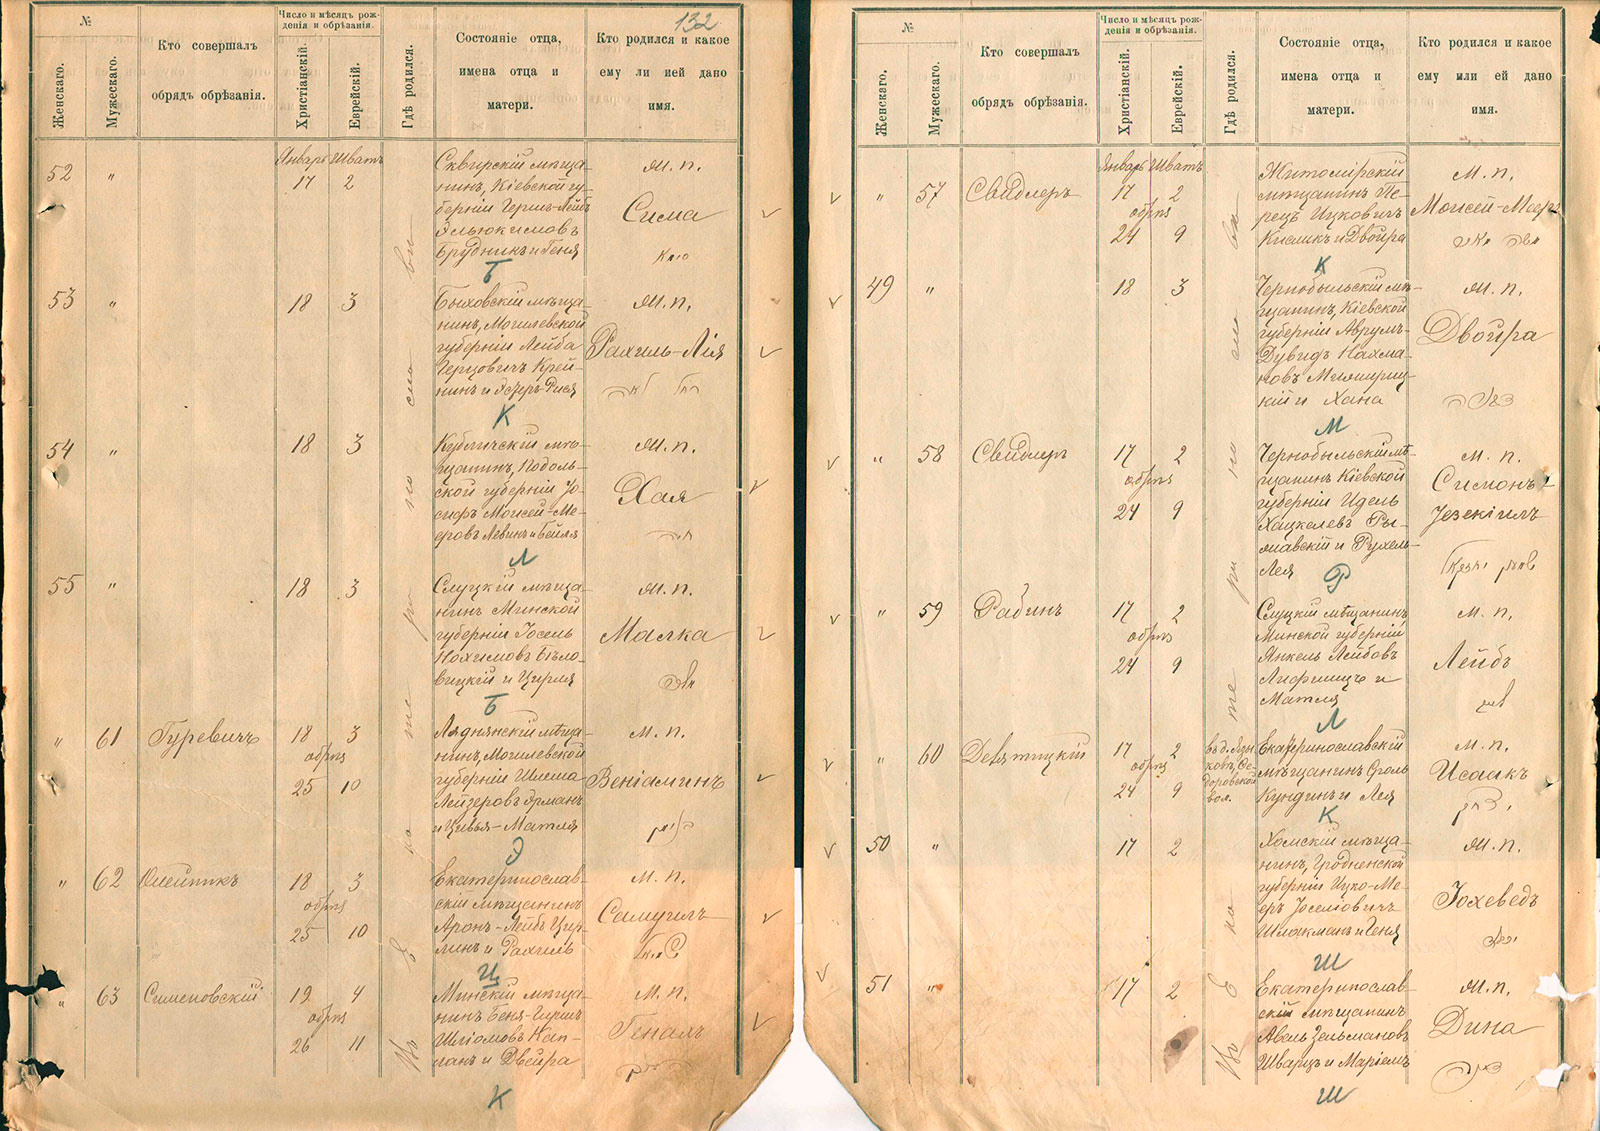 132
№
Женскаго.
Мужескаго.
Кто совершалъ
обрядъ обрѣзанія.
Число и мѣсяцъ рож-
денія и обрѣзанія.
Христіанскій.
Еврейскій.
Гдѣ родился.
Состояніе отца,
имена отца и
матери.
Кто родился и какое
ему ли ей дано
имя.
Январь Шватъ
52 " 17 2
Сквирскій мѣща-
нинъ, Кіевской гу-
берніи Гершъ-Лейбъ
Эльюкимовъ
Брудникъ и Геня
М. п.
Сима
Б
53 " 18 3
Быховскій мѣща-
нинъ, Могилевской
губерніи Лейба
Герцовичъ Крей-
нинъ и Эстеръ-Рися
М. п.
Рахиль-Лія
К
54 " 18 3
мѣ-
щанинъ, Подоль-
ской губерніи Іо-
сифъ Моисей-Ме-
еровъ Левинъ и Бейля
М. п.
Хая
Л
55 " 18 3
Слуцкій мѣща-
нинъ Минской
губерніи Іосель
Нохимовъ Бѣло-
вицкій и Цирля
М. п.
Малка
Б
" 61 Гуревичъ 18 3
обрѣз
25 10
Ляднянскій мѣща-
нинъ, Могилевской
губерніи Шлема
Лейзеровъ Эрманъ
и Цивья-Матля
М. п.
Веніаминъ
Э
" 62 Олейникъ 18 3
обрѣз
25 10
Екатеринослав-
скій мѣщанинъ
Аронъ-Лейбъ Цир-
линъ и Рахиль
М. п.
Самуилъ
Ц
" 63 Сименовскій 19 4
обрѣз
26 11
Минскій мѣща-
нинъ Беня-Гиршъ
Шліомовъ Кап-
ланъ и Двейра
М. п.
К
№
Женскаго.
Мужескаго.
Кто совершалъ
обрядъ обрѣзанія.
Число и мѣсяцъ рож-
денія и обрѣзанія.
Христіанскій.
Еврейскій.
Гдѣ родился.
Состояніе отца,
имена отца и
матери.
Кто родился и какое
ему или ей дано
имя.
Январь Шватъ
" 57 Свидлеръ 17 2
обрѣз
24 9
Житомірскій
мѣщанинъ Пе-
рецъ Ицковичъ
Кисликъ и Двойра
М. п.
Моисей-Мееръ
К
49 " 18 3
Чернобыльскій мѣ-
щанинъ, Кіевской
губерніи Аврумъ-
Дувидъ Нахма-
новъ
и Хана
М. п.
Двойра
М
" 58 Свидлеръ 17 2
обрѣз
24 9
Чернобыльскій мѣ-
щанинъ Кіевской
губерніи Идель
Хацкелевъ Ры-
и Рухель-
Лея
М. п.
Симонъ-
Іезекіилъ
Р
" 59 Рабинъ 17 2
обрѣз
24 9
Слуцкій мѣщанинъ
Минской губерніи
Янкель Лейбовъ
Лифшицъ и
Матля
М. п.
Лейбъ
Л
" 60 Девятицкій 17 2
обрѣз
24 9
вол.
Екатеринославскій
мѣщанинъ Сроль
Кундинъ и Лея
М. п.
Исаакъ
К
50 " 17 2
Хомскій мѣща-
нинъ, Гродненской
губерніи Ицко-Ме-
еръ Іоселіовичъ
Шлакманъ и Геня
М. п.
Іохеведъ
Ш
51 " 17 2
Екатеринослав-
скій мѣщанинъ
Авель Зельмановъ
Шварцъ и Маріемъ
М. п.
Дина
Ш